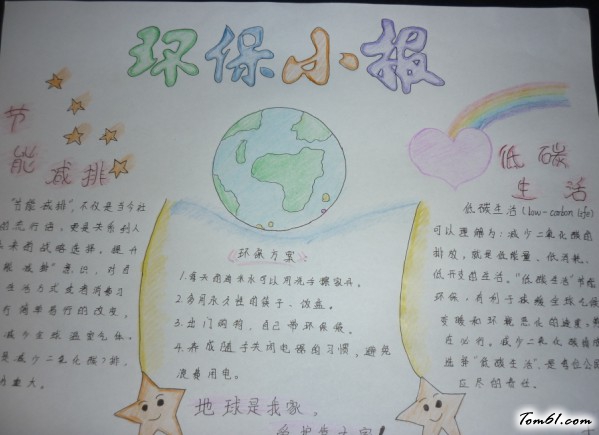 环保小报
节能减排
"节能减排",不仅是当今社
流行语,更是关系到人
未来的战略选择。提升
意识,对自
生活方式或消费习
行简单易行的改变,
减少全球温室气体
是减少二氧化碳)排,
重大。
《环保方案》
1.每天的淘米水可以用洗手擦家具。
2.多用永久性的筷子、饭盒。
3.出门购物,自己带环保袋。
4.养成随手关闭电器的习惯,避免
浪费用电。
地球是我家,
低碳
生活
低碳生活(low-carbon life)
可以理解为:减少二氧化碳的
排放,就是低能量、低消耗、
低开支的生活。"低碳生活"节能
环保,有利于减缓全球气候
变暖和环境恶化的速度,势
在必行。减少二氧化碳
选择"低碳生活",是每位公
应尽的责任。
Tom61.com